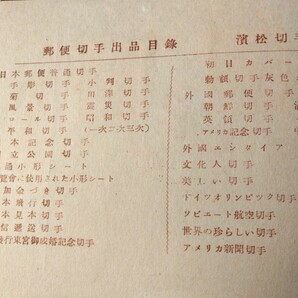 郵便切手出品目録
日本郵便普通切手
手彫切手 小判切手
菊切手 田澤切手
風景切手 震災切手
ロール切手 昭和切手
平和切手 (一次二次三次)
本記念切手
立公園切手
小形シート
覽會に使用された小形シート
加金つき切手
本飛行切手
本見本切手
信逓送切手
發行東宮御成婚記念切手
濱松切手
初日カバー
動額切手灰色
外國郵便切手
朝鮮切手
英領切手
アメリカ記念切手
外國エンタイア
文化人切手
美しい切手
ドイツオリンピック切手
ソビエート航空切手
世界の珍らしい切手
アメリカ新聞切手